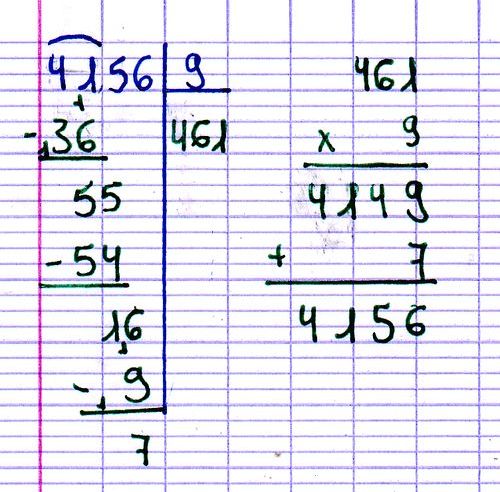 4156 9
- 36 461
55
- 54
16
- 9
7
461
x 9
4149
+ 7
4156